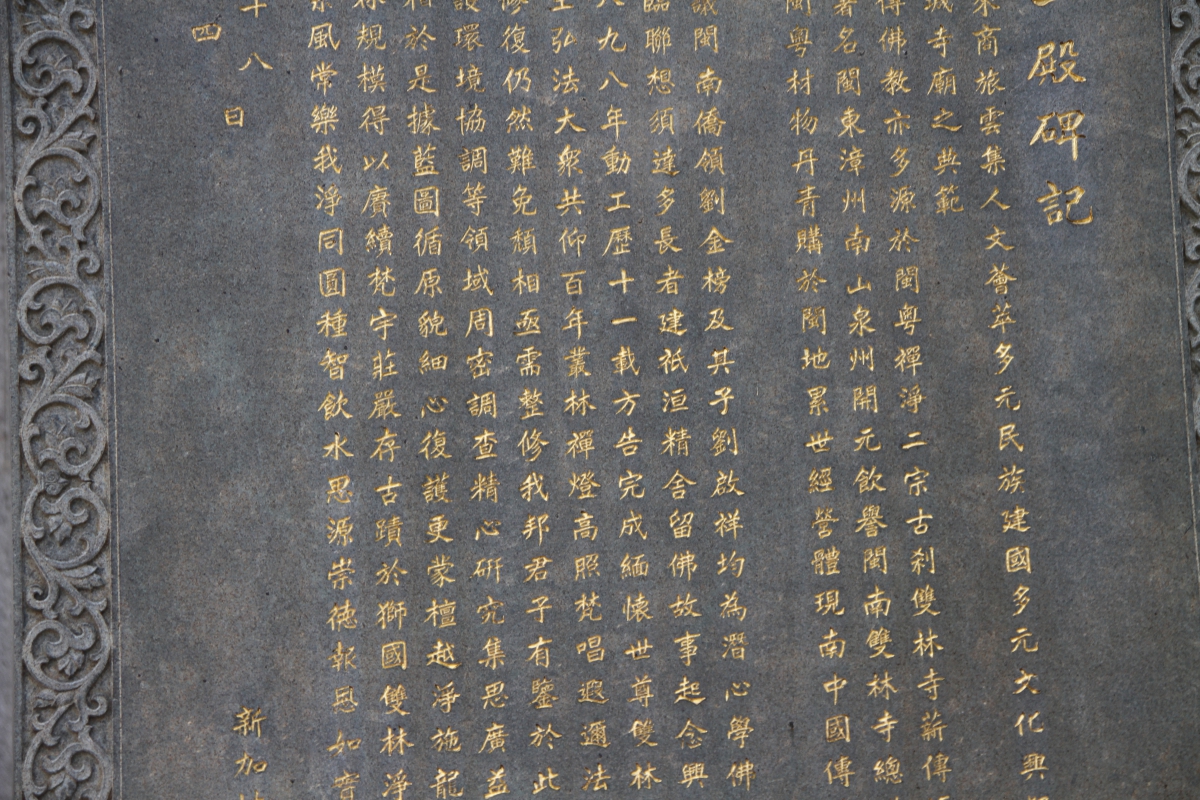 殿碑記
來商旅雲集人文薈萃多元民族建國多元文化興
城寺廟之典範
傳佛教亦多源於閩粵禪淨二宗古剎雙林寺薪傳
著名閩東漳州南山泉州開元飲譽閩南雙林寺總
閩粵材物丹青購於閩地累世經營體現南中國傳
議閩南僑領劉金榜及其子劉啟祥均為潛心學佛
臨聯想須達多長者建祇洹精舍留佛故事起念興
八九八年動工歷十一載方告完成緬懷世尊雙林
弘法大眾共仰百年叢林禪燈高照梵唱遐邇法
修復仍然難免頹相亟需整修我邦君子有鑒於此
設環境協調等領域周密調查精心研究集思廣益
相於是據藍圖循原貌細心復護更蒙檀越淨施龍
規模得以賡續梵宇莊嚴存古蹟於獅國雙林淨
風常樂我淨同圓種智飲水思源崇德報恩如
十八日
四
新加